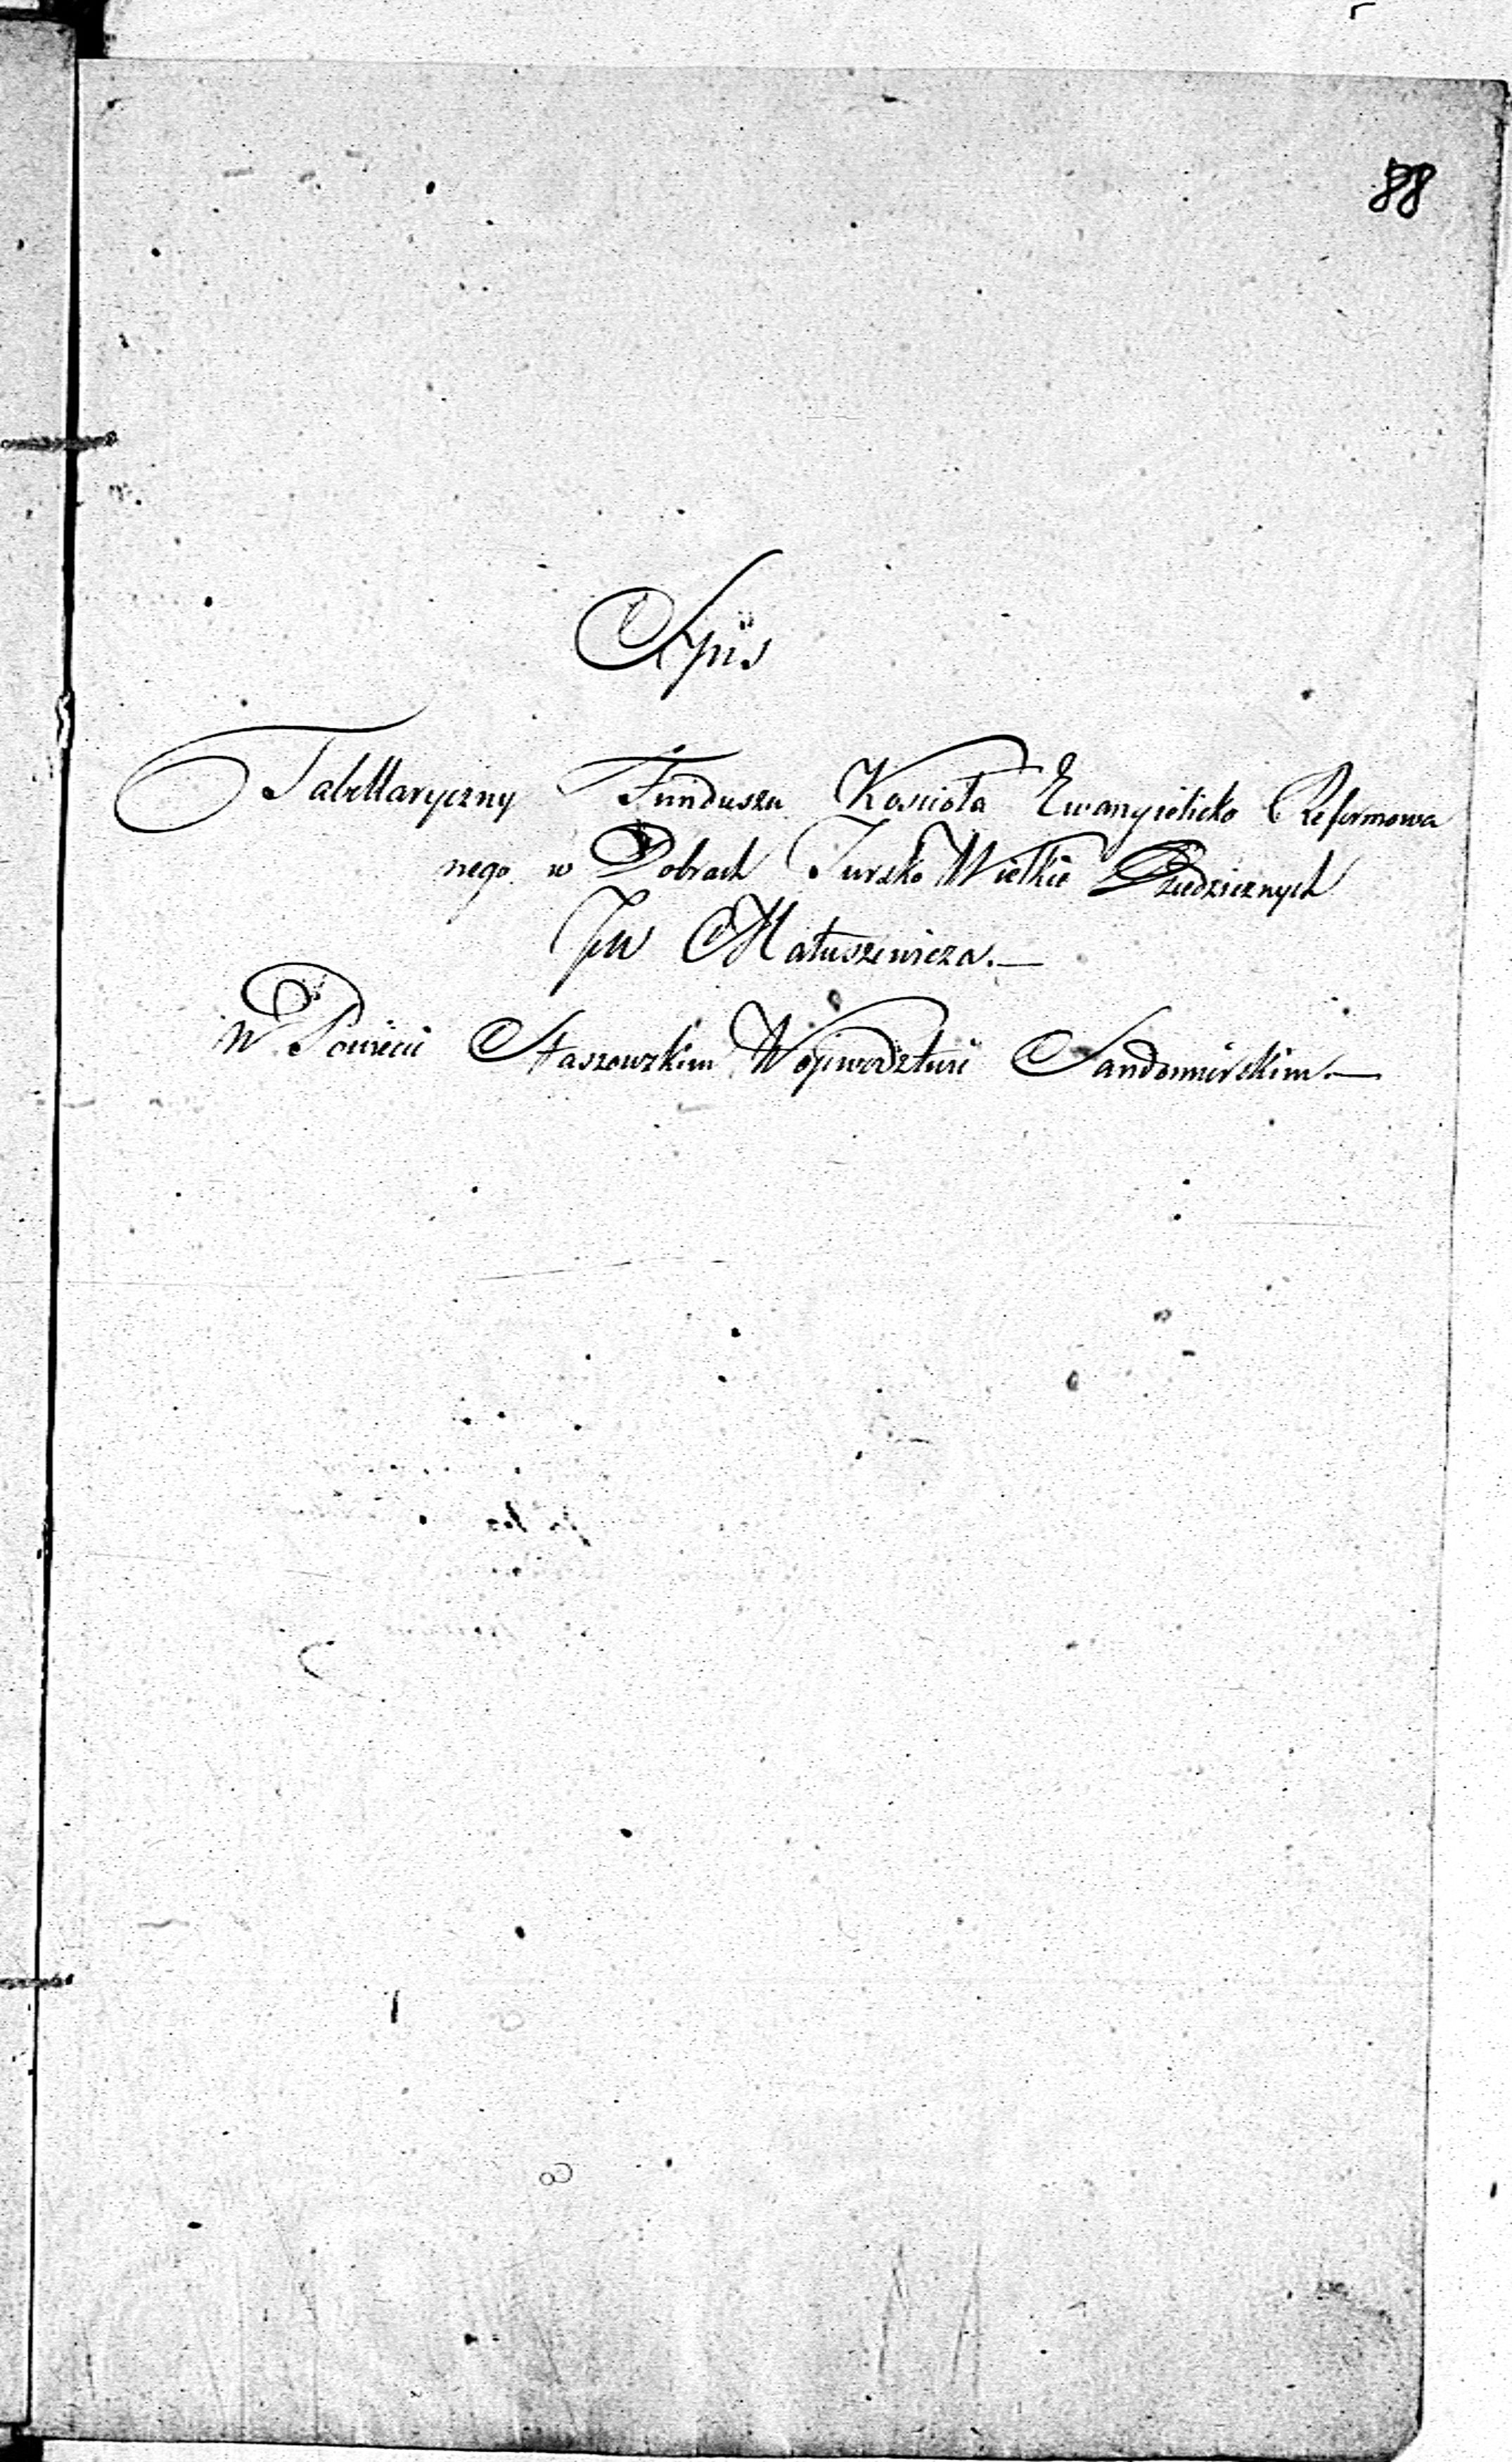 88
Spis
Tabellaryczny Funduszu Kościoła Ewangielicko Reformowa
nego w Dobrach Tursko Wielkie Dziedzicznych
JW Matuszewicza.—
W Powiecie Staszowskim Wojewodztwie Sandomirskim.—